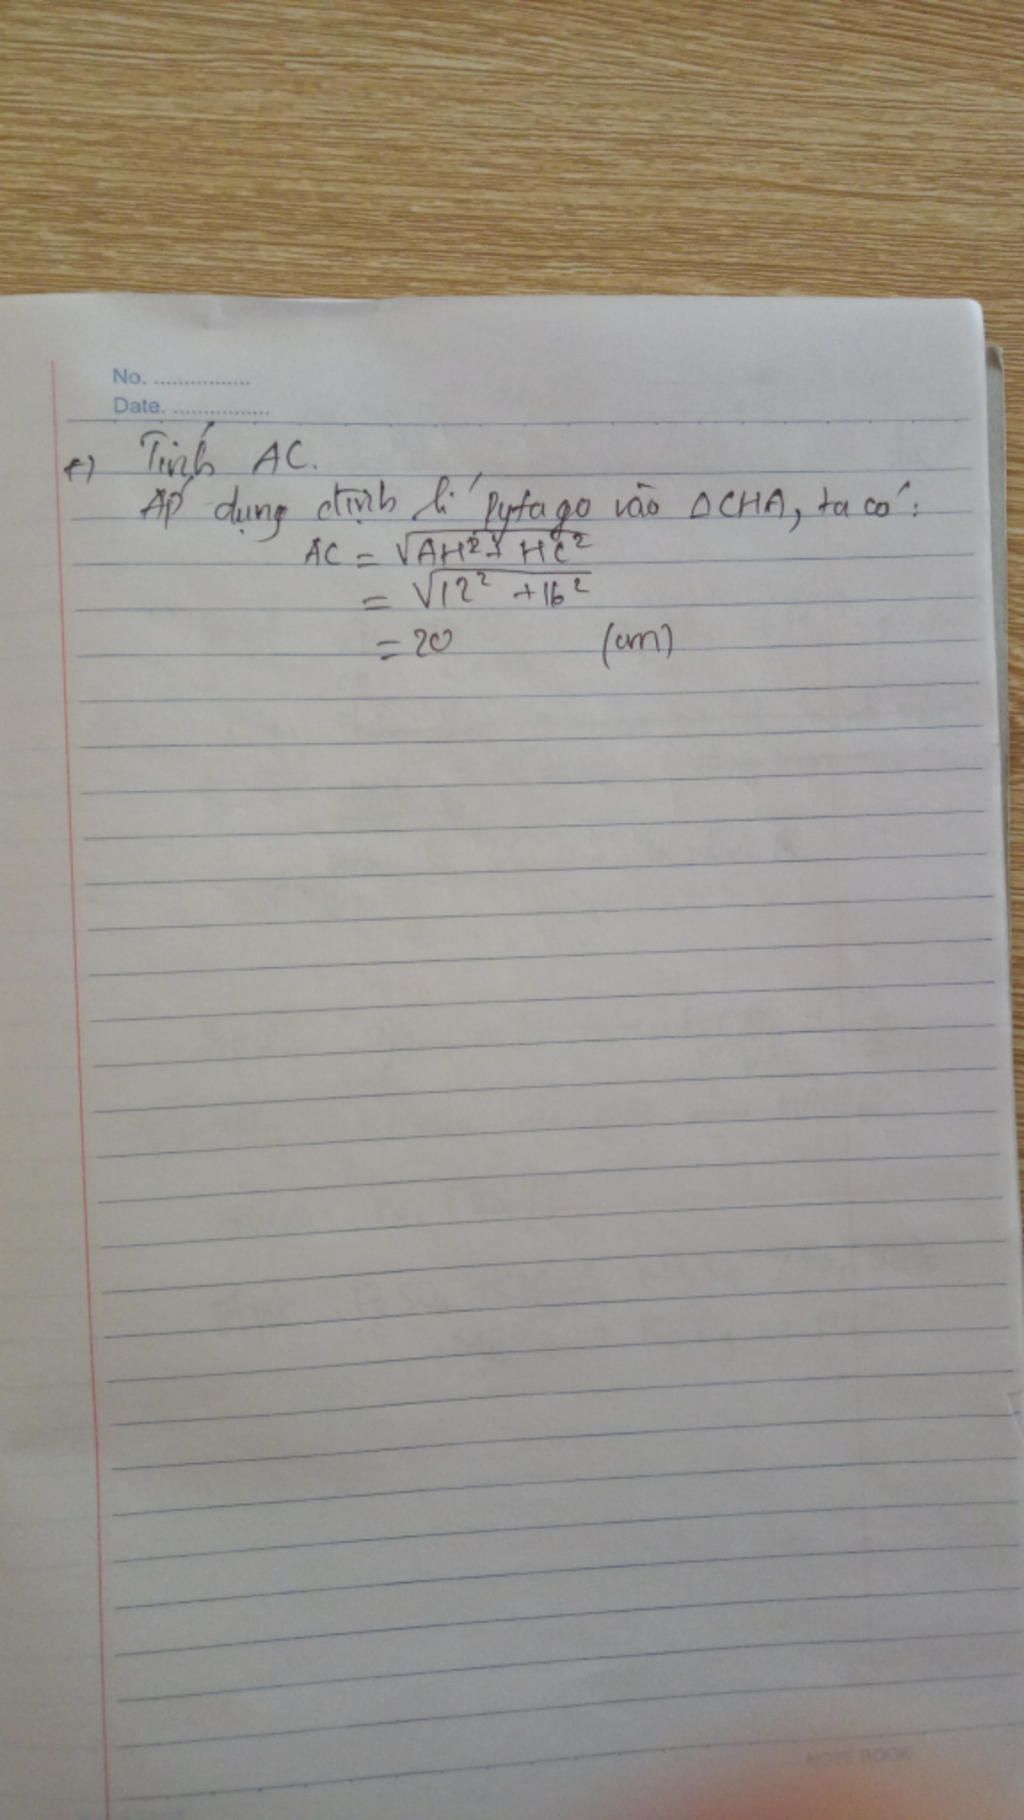 No. ................
Date. ................
+) Tính AC.
Áp dụng định lí Pytago vào ΔCHA, ta có:
AC = √AH² + HC²
= √12² + 16²
= 20 (cm)
NOTE BOOK